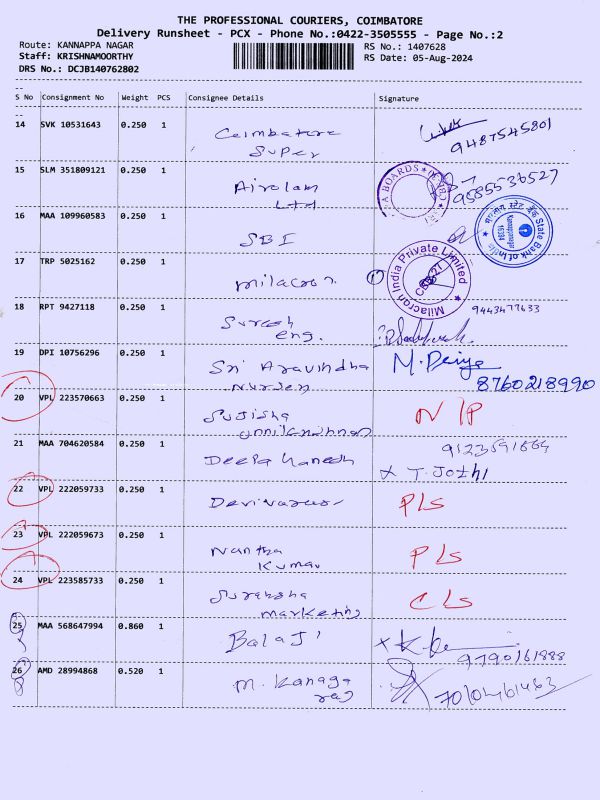 THE PROFESSIONAL COURIERS, COIMBATORE
Delivery Runsheet - PCX - Phone No.:0422-3505555 - Page No.:2
Route: KANNAPPA NAGAR RS No.: 1407628
Staff: KRISHNAMOORTHY RS Date: 05-Aug-2024
DRS No.: DCJB140762802
S No Consignment No Weight PCS Consignee Details Signature
14 SVK 10531643 0.250 1 Coimbatore Super 9487545801
15 SLM 351809121 0.250 1 Airolam Ltd 9585536527
16 MAA 109960583 0.250 1 SBI
State Bank of India
17 TRP 5025162 0.250 1 milacron 1
Milacron India Private Limited
18 RPT 9427118 0.250 1 Suresh eng. 9443477633
19 DPI 10756296 0.250 1 Sri Aravindha M. Periya
8760218990
20 VPL 223570663 0.250 1 Sujisha unnikrishnan N IP
21 MAA 704620584 0.250 1 Deepa Ganesh
x T. Jothi
22 VPL 222059733 0.250 1 PLS
23 VPL 222059673 0.250 1 Nantha Kumar PLS
24 VPL 223585733 0.250 1 marketing CLS
25 MAA 568647994 0.860 1 Balaji x
9790161888
26 AMD 28994868 0.520 1 M. Kanaga raj